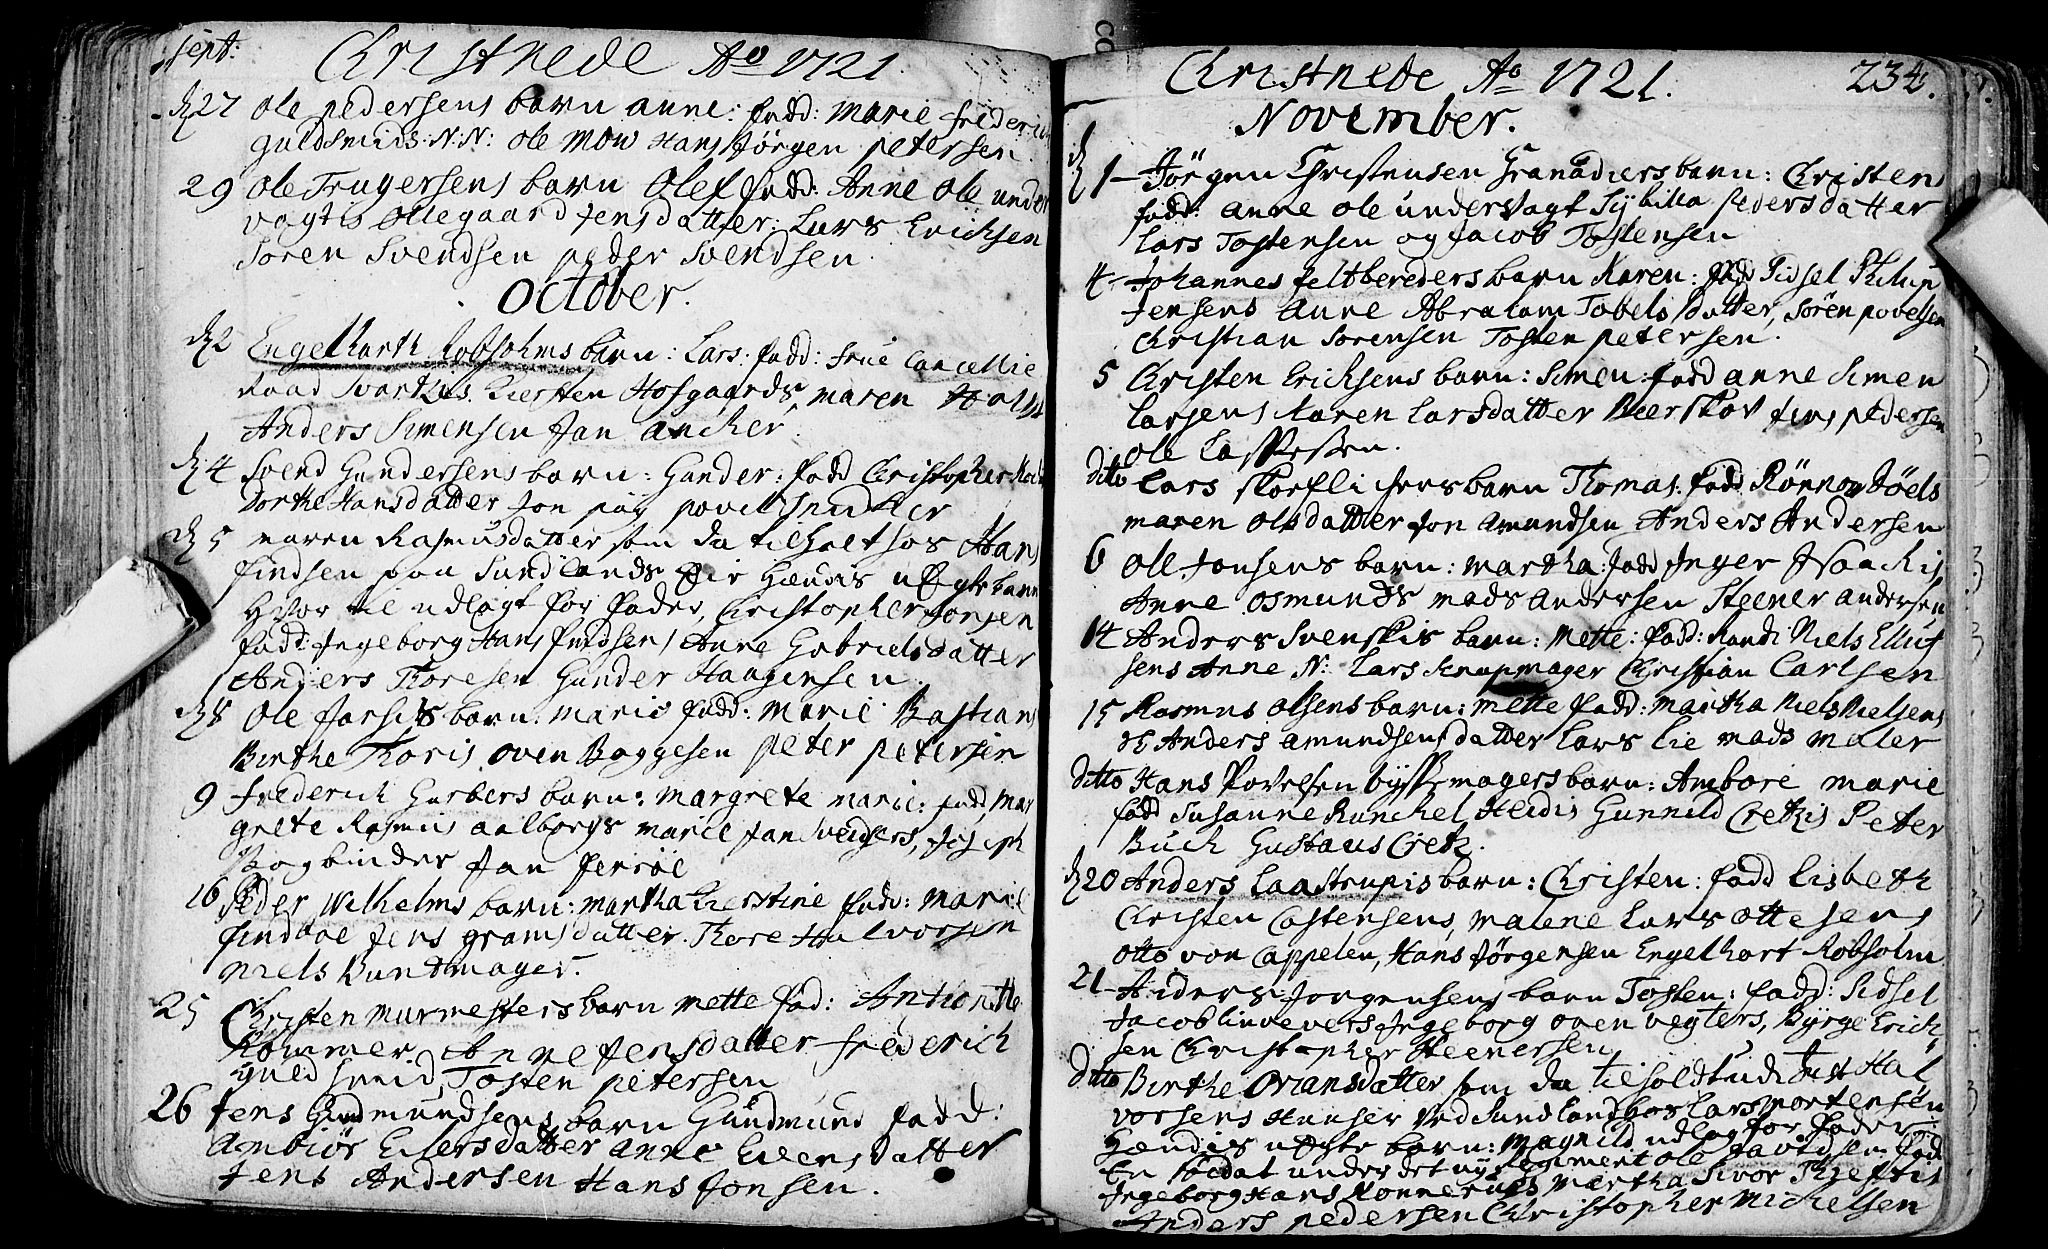 Sept: Christnede Ao 1721.
27 Ole Pedersens barn Anne: fadd: Marie Friderich
guldsmids. N.N: Ole Mow Hans Jörgen Petersen
29 Ole Trugersens barn Olef fadd: Anne Ole under
vogtis Ollegaard Jensdatter: Lars Ericksen
Sören Svendsen peder Svendsen.
October.
2 Engelharth Robsohms barn: Lars. fadd: frue Cancellie
Raad Kiersten Hofgaards maren Holm
Anders Simensen Jan Ancher
4 Svend Gundersens barn: Gunder: fadd Christopher
Dorthe Hansdatter Jon povel Snidker
5 maren Rasmusdatter som da tilholt hos Hans
findsen paa Sundlands Eie Hendis uEgte barn
Hvor til udlagt for fader, Christopher
fadd: Ingeborg Hans findsens Anne Gabrielsdatter
Anders Thoresen Gunder Haagensen.
8 Ole barn: Marie fadd: Marie Bastians
Birthe Thoris oven Baggesen Peter Petersen
9 Frederich Gerbers barn: Margrete Marie: fadd, Mar
grete Rasmus Aalborgs Marie Jan Joseph
Bogbinder Jan
16 Peder Wilhelms barn: Martha Kierstine fadd: Marie
Jens gramsdatter. Thore Halvorsen
Niels Buntmager.
25 Christen Murmesters barn Mette fad: Antionette
Kommer. Anne Jensdatter Frederich
guldsmid, Tosten petersen
26 Jens Gudmundsens barn Gundmund fadd:
Ambiör Eilersdatter Anne datter
Jens Andersen Hans Jonsen.
Christnede Ao 1721. 234.
November.
1 Jörgen Christensen Granadiers barn: Christen
fadd: Anne Ole undervagt Sybilla Pedersdatter
Lars Tostensen og Jacob Tostensen
4 Johannes feltbereders barn Karen: fadd Sidsel Philip
Jensens Anne Abraham Tobels datter, Sören povelsen
Christian Sörensen Tosten petersen.
5 Christen Ericksens barn: Simen: fadd Anne Simen
Larsens Karen Larsdatter Beerskov Jens pedersen
Ole
dito Lars barn Thomas. fadd Rönnov Jöels
maren Olsdatter Jon Amundsen Anders Andersen
6 Oll Jonsens barn: Martha: fadd Inger Isaachis
Anne Osmunds Mads Andersen Steener Andersen
14 Anders Svenskis barn: Mette: fadd: Randi Niels Elluf
sens Anne N: Lars Knapmager Christian Carlsen
15 Rasmus Olsens barn: Mette fadd: Martha Niels Nielsens
Anders Amundsens datter Lars Lie Mads Maler
ditto Hans Povelsen bysse magers barn: Ambore Marie
fadd Susanne Runchel, Heidis Gunnild Cretzis Peter
Buch Gustaus Cretz.
20 Anders Laastrupis barn: Christen: fadd Lisbeth
Christen Castensens, Malene Lars Ottesens
Otto von Cappelen, Hans Jörgensen Engelhart Robsohm
21 Anders Jorgensens barn Tosten: fadd: Sidsel
Jacob linvevers Ingeborg oven vegters, Byrge Erich
sen Christopher Steenersen
ditto Birthe Oriansdatter som da tilholdt udi Just Hal
vorsens Huuser ved Sundland hos Lars Mortensen
Hendis uEgte barn: Magnild udlag for fader
En Soldat under det ny Regiment Ole Davidsen fad
Ingeborg Hans Konnerups Martha Sivor
Anders pedersen Christopher Michelsen